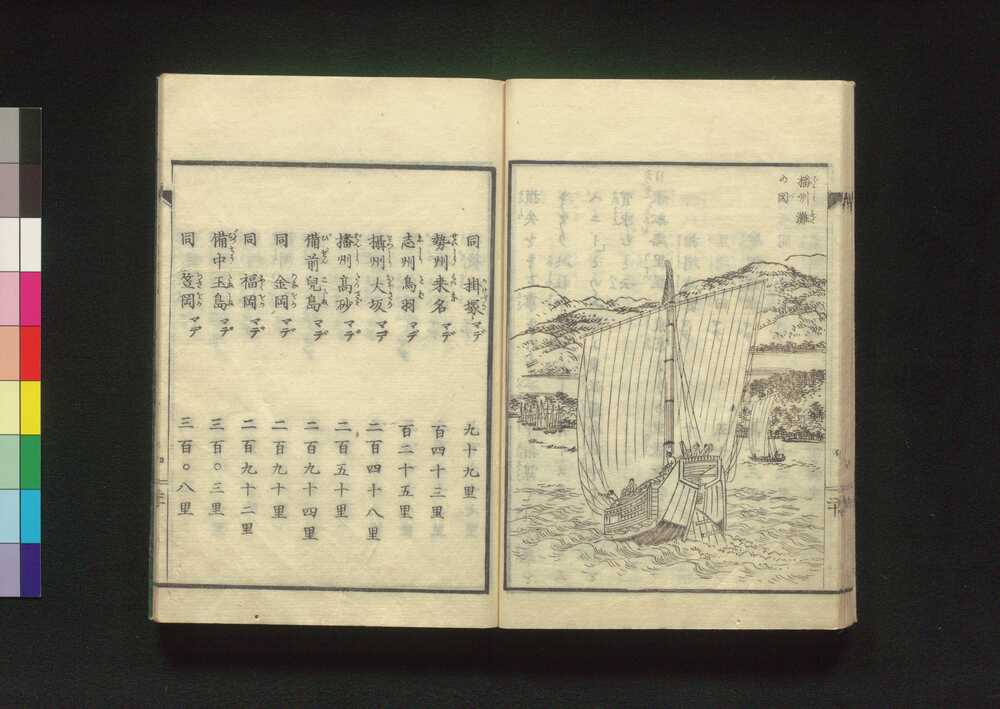 播州灘
の図
同 掛塚マデ 九十九里
勢州桑名マデ 百四十三里
志州鳥羽マデ 百二十五里
攝州大坂マデ 二百四十八里
播州高砂マデ 二百五十里
備前兒島マデ 二百九十四里
同 金岡マデ 二百九十里
同 福岡マデ 二百九十二里
備中玉島マデ 三百〇三里
同 笠岡マデ 三百〇八里